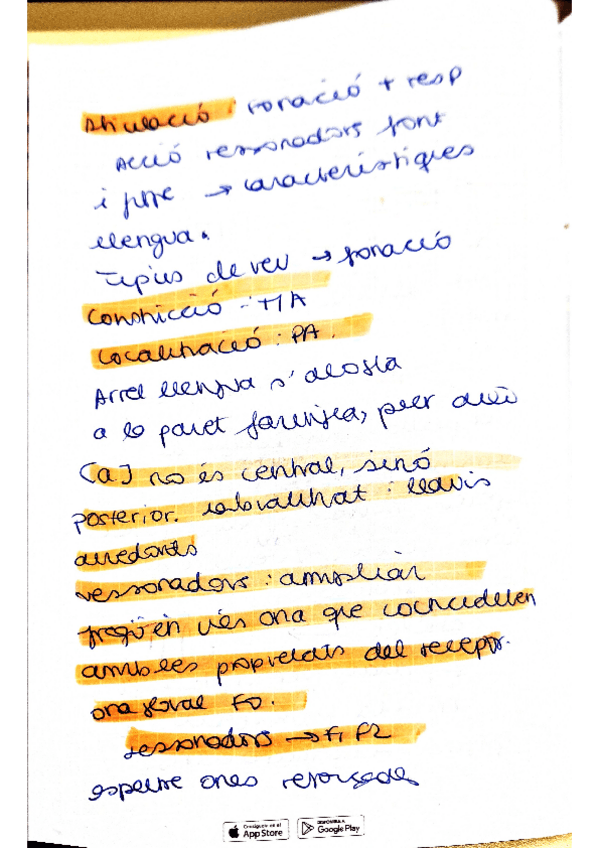 Articulació : fonació + resp
Acció ressonadors font
i filtre → característiques
llengua.
Tipus de veu → fonació
Constricció - M/A
Localització : PA.
Arrel llengua s'acosta
a la paret faríngea, per això
[a] no és central, sinó
posterior. labialitzat : llavis
arredonits
ressonadors : ampliar
freqüències ona que coincideixen
amb les propietats del receptor.
ona glotal F0.
ressonadors → F1 F2
espectre ones reforçades
Consígueo en el App Store
DISPONIBLE EN Google Play